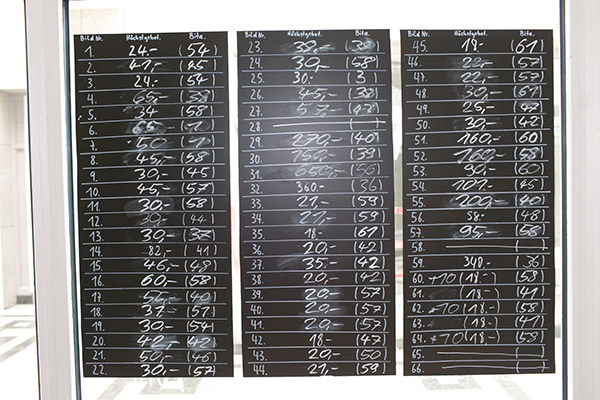 Bild Nr. Höchstgebot. Bita.
1. 24.- (54)
2. 41,- (45
3. 24.- (54)
4. 65,- (38
5. 34 (58)
6. 65
7. 50
8. 45,- (58)
9. 30,- (45)
10. 45,- (57)
11. 30,- (58)
12. 30,- (44
13. 30,- (37
14. 82,- (41)
15. 46,- (48
16. 60,- (58)
17. (40)
18. 37,- (57)
19. 30,- (54)
20. 42,- (42)
21. 50,- (46)
22. 30,- (57)
Bild Nr. Höchstgebot. Bita.
23. 39,-
24. 30,- (58)
25. 30.- (3)
26. 45,- (38)
27. 57,-
28.
29. 270,- (40)
30. 150,- (39)
31. 650,- (56)
32. 360.- (36)
33. 21,- (59)
34. 27,- (59)
35. 18.- (61)
36. 20,- (42
37. 35,- (42)
38. 20,- (42
39. 20,- (57)
40. 20,- (57)
41. 20,- (57)
42. 18.- (47)
43. 20,- (50)
44. 21,- (59)
Bild Nr. Höchstgebot. Bita.
45. 18.- (61)
46. 22,- (57)
47. 22,- (57)
48. 30,- (61)
49. 25,-
50. 30,- (42)
51. 160,- (60)
52. 160,- (58)
53. 90,- (60)
54. 101,- (45)
55. 200,- (40)
56. 58.- (48)
57. 95,- (58)
58.
59. 348.- (36)
60. +10 (18.-) (59)
61. (18.-) (41)
62. +10 (18.-) (58)
63. (18.-) (41)
64. +10 (18.-) (59)
65.
66.